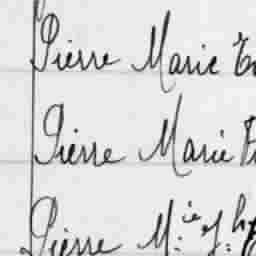 Pierre Marie
Pierre Marie
Pierre M.ie J.h